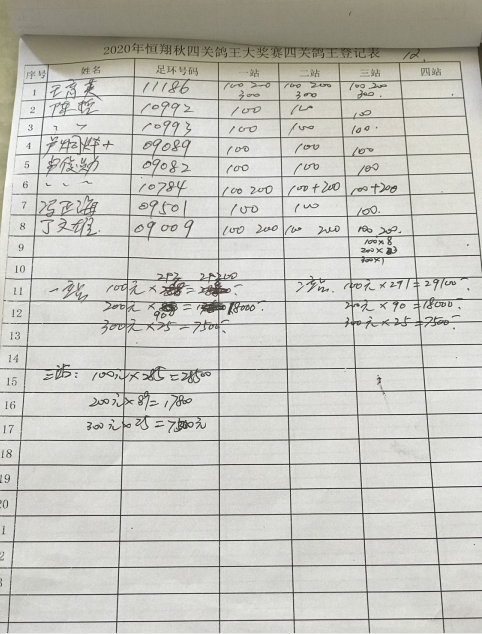 2020年恒翔秋四关鸽王大奖赛四关鸽王登记表 12.
序号 姓名 足环号码 一站 二站 三站 四站
1 11186 100 200 300 100 200 300 100.200 300.
2 10992 100 100 100
3 〃 〃 10993 100 100 100.
4 09089 100 100 100
5 09082 100 100 100
6 〃 〃 〃 10784 100 200 100+200 100+200
7 09501 100 100 100.
8 丁文雄 09009 100 200 100 200 100 200.
9 100×8
200×3
300×1
10
11 一站 100元× 292 = 29200 二站. 100元×291=29100
12 200元× 90 = 18000 200元×90=18000
13 300元×25=7500 300元×25=7500
14
15 三站: 100元×285=28500
16 200元×89=17800
17 300元×25=7500元
18
19
20
1
2
3